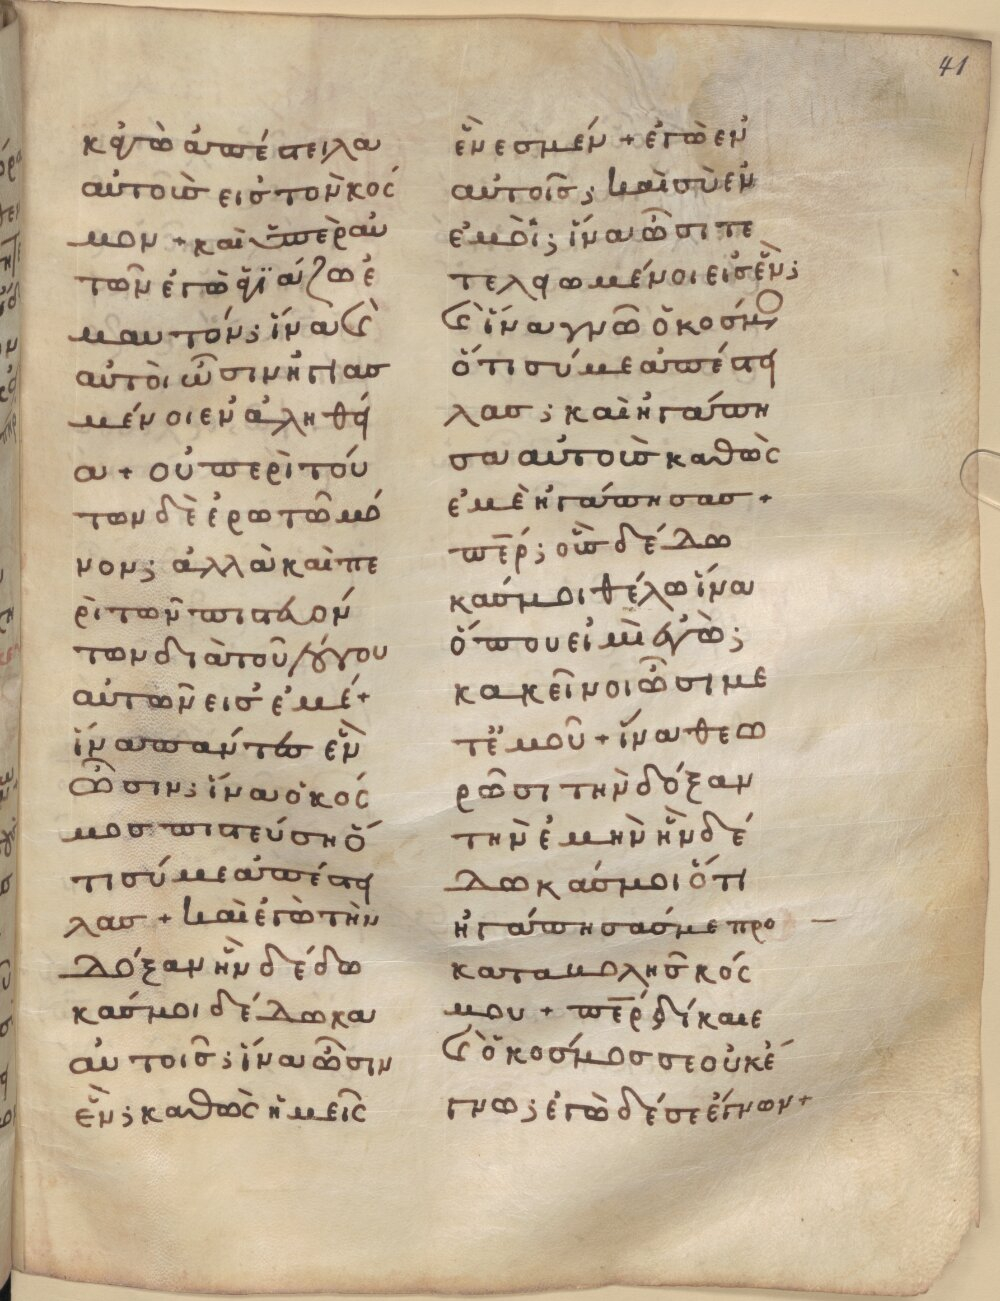 41
κἀγὼ ἀπέστειλα
αὐτοὺς εἰς τὸν κόσ
μον + καὶ ὑπὲρ αὐ
τῶν ἐγὼ ἁγϊάζω ἐ
μαυτόν; ἵνα καὶ
αὐτοὶ ὦσιν ἡγιασ
μένοι ἐν ἀληθεί
α + οὐ περὶ τού
των δὲ ἐρωτῶ μό
νον; ἀλλὰ καὶ πε
ρὶ τῶν πιστευόν
των διὰ τοῦ λόγου
αὐτῶν εἰς ἐμέ +
ἵνα πάντες ἓν
ὦσιν; ἵνα ὁ κόσ
μος πιστεύση ὅ
τι σύ με ἀπέστει
λας + καὶ ἐγὼ τὴν
δόξαν ἣν δέδω
κάς μοι δέδωκα
αὐτοῖς; ἵνα ὦσιν
ἕν; καθὼς ἡμεῖς
ἕν ἐσμέν + ἐγὼ ἐν
αὐτοῖς; καὶ σὺ ἐν
ἐμοῒ; ἵνα ὦσι τε
τελειωμένοι εἰς ἕν;
καὶ ἵνα γνῶ ὁ κόσμος
ὅτι σύ με ἀπέστει
λας; καὶ ἠγάπη
σα αὐτοὺς καθὼς
ἐμὲ ἠγάπησας +
πε̅ρ; οὓς δέδω
κάς μοι θέλω ἵνα
ὅπου εἰμὶ ἐγὼ;
κακεῖνοι ὦσι με
τἐμοῦ + ἵνα θεω
ρῶσι τὴν δόξαν
τὴν ἐμὴν ἣν δέ
δωκάς μοι ὅτι
ἠγάπησάς με προ
καταβολῆς κόσ
μου + πε̅ρ δίκαιε
καὶ ὁ κόσμος σε οὐκ ἔ
γνω; ἐγὼ δέ σε ἔγνων +